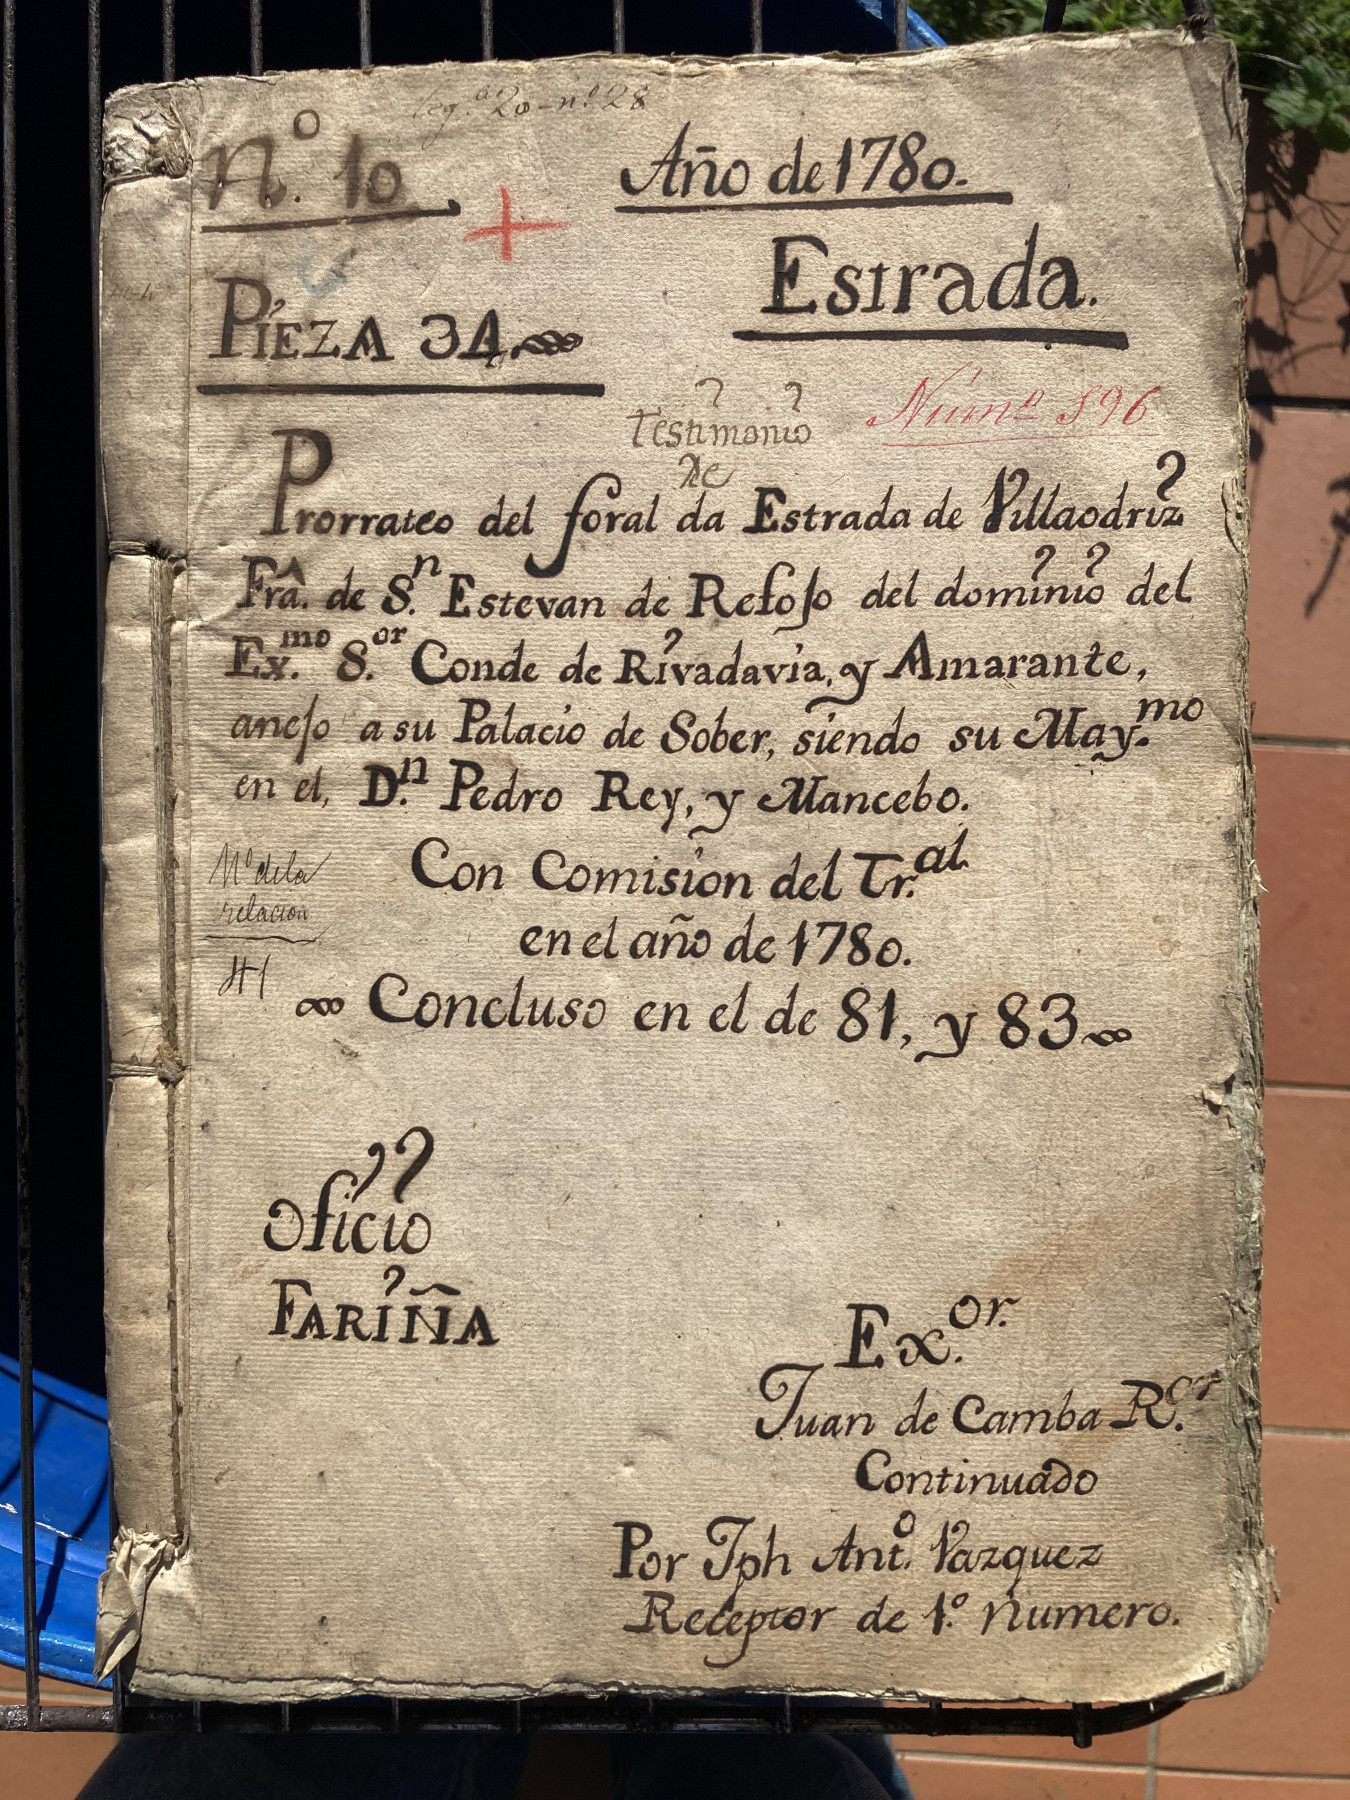 Leg.º 20 - nº 28
Nº. 10
Año de 1780.
Estrada.
PIEZA 34.
Testimonio
de
Númº 896
Prorrateo del foral da Estrada de Villaodriz
Frâ. de S.n Estevan de Refoſo del dominio del
Ex.mo S.or Conde de Rivadavia, y Amarante,
aneſo a su Palacio de Sober, siendo su May.mo
en el, D.n Pedro Rey, y Mancebo.
Con Comision del Tr.al
en el año de 1780.
Concluso en el de 81, y 83
Nº de la
relacion
41
oficio
FARIÑA
Ex.or.
Juan de Camba R.or
Continuado
Por Jph Ant.o Vazquez
Receptor de 1.º numero.